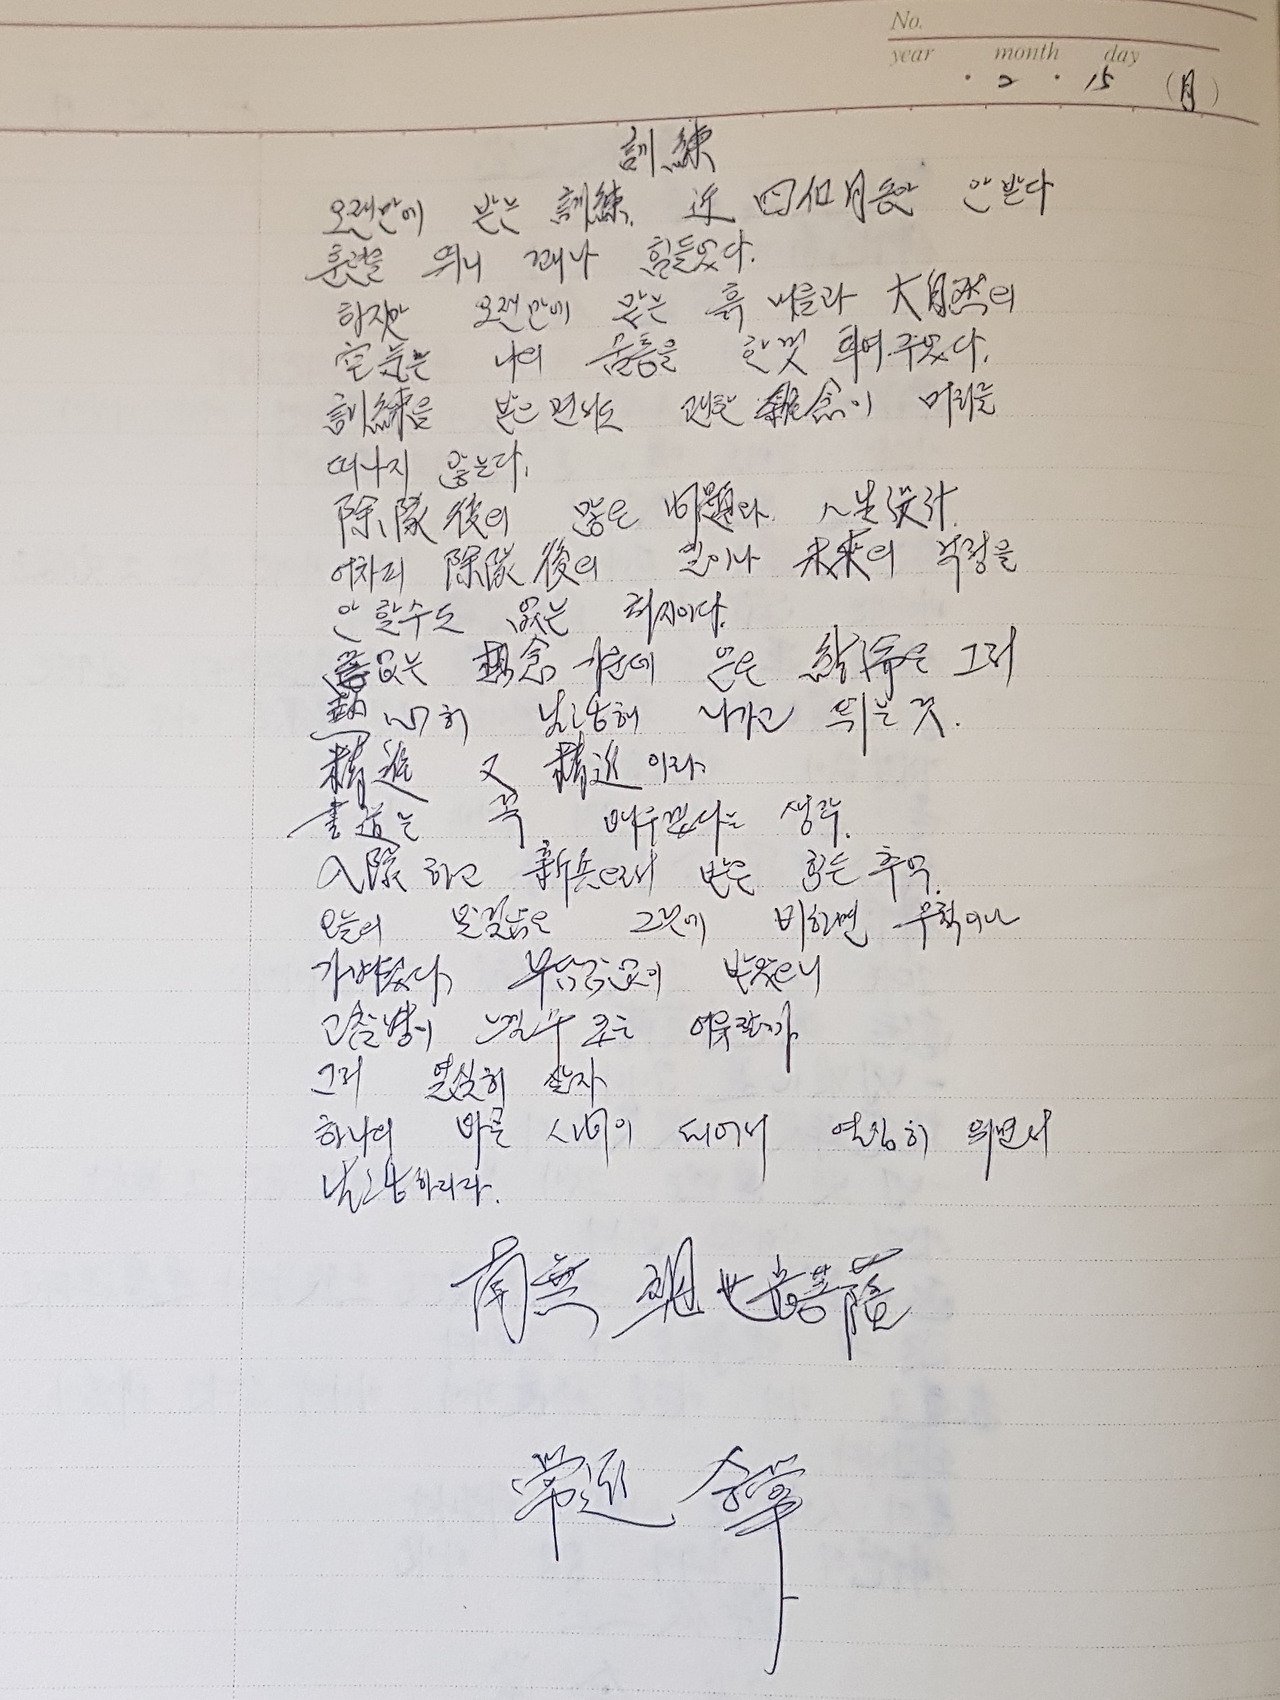 No.
year month day
· 2 · 15 (月)
訓練
오랜만에 받는 訓練. 近 四個月동안 안 받다
훈련을 뛰니 꽤나 힘들었다.
하지만 오랜만에 맡는 흙 내음과 大自然의
空氣는 나의 숨통을 한껏 틔어 주었다.
訓練을 받으면서도 괜한 雜念이 머리를
떠나지 않는다.
除隊後의 많은 問題와 人生設計.
어차피 除隊後의 일이나 未來의 걱정을
안 할수도 없는 처지이다.
없는 想念 가운데 얻은 結論은 그저
熱心히 나가고 뛰는 것.
精進 又 精進이라.
書道는 꼭 배우겠다는 생각.
入隊하고 新兵으로서 받은 힘든 추억.
오늘의 발걸음은 그것에 비하면 무척이나
가벼웠다. 부담감없이 받았으니
고참병이 느낄 수 있는 여유랄까.
그저 열심히 살자
하나의 바른 되어서 열심히 뛰면서
南無 觀世音菩薩
常進